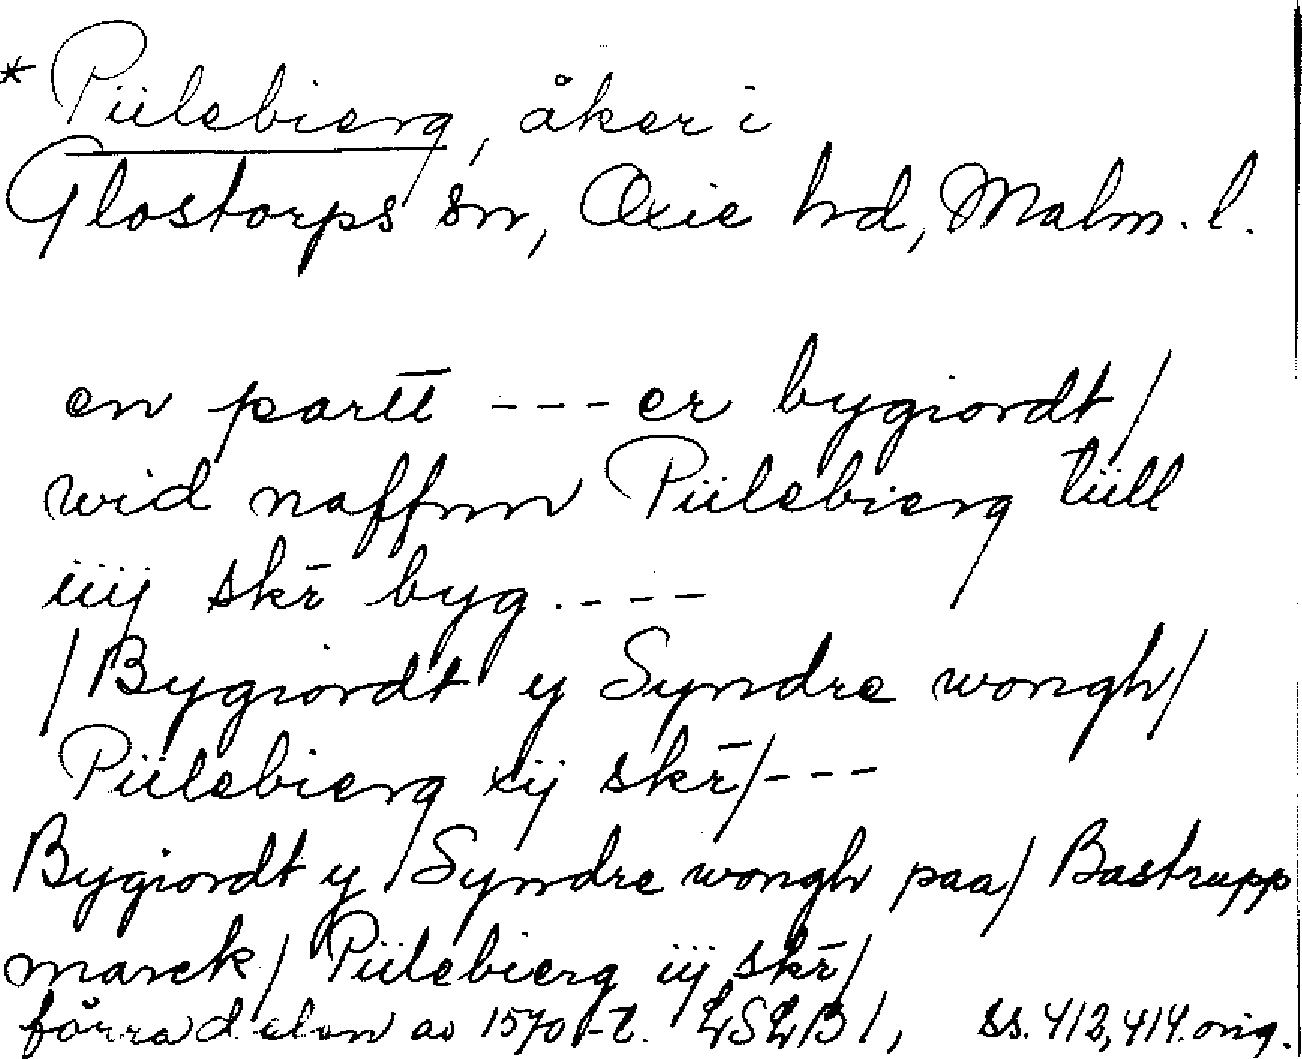 * Piilebierg, åker i
Glostorps sn, Oxie hd, Malm. l.
en partt --- er bygiordt /
wid naffnn Piilebierg tiill
iiij skr̄ byg. ---
/ Bygiordt y Syndre wongh /
Piilebierg xij skr̄ / ---
Bygiordt y / Syndre wongh paa / Bastrupp
marck / Piilebierg iij skr̄ /
förra delen av 1570-t. LSLB 1, ss. 412, 414. orig.